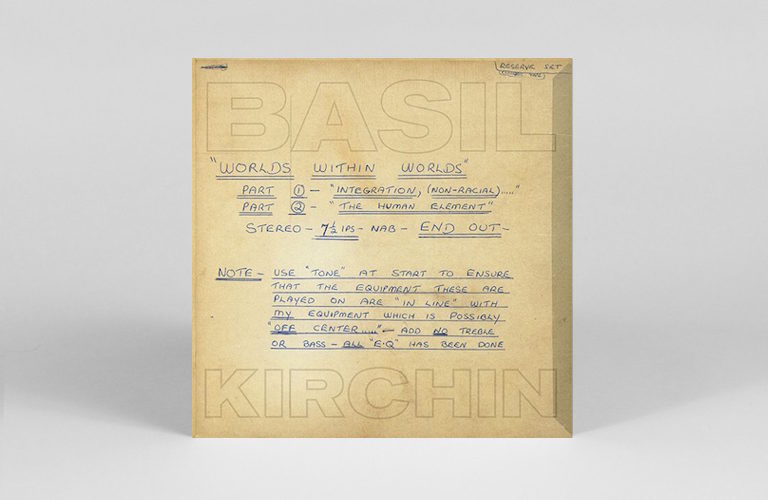 RESERVE SET
BASIL
"WORLDS WITHIN WORLDS"
PART ① – "INTEGRATION, (NON-RACIAL)....."
PART ② – "THE HUMAN ELEMENT"
STEREO – 7½ IPS – NAB – END OUT –
NOTE – USE "TONE" AT START TO ENSURE
THAT THE EQUIPMENT THESE ARE
PLAYED ON ARE "IN LINE" WITH
MY EQUIPMENT WHICH IS POSSIBLY
"OFF CENTER....." – ADD NO TREBLE
OR BASS – ALL "E.Q" HAS BEEN DONE
KIRCHIN